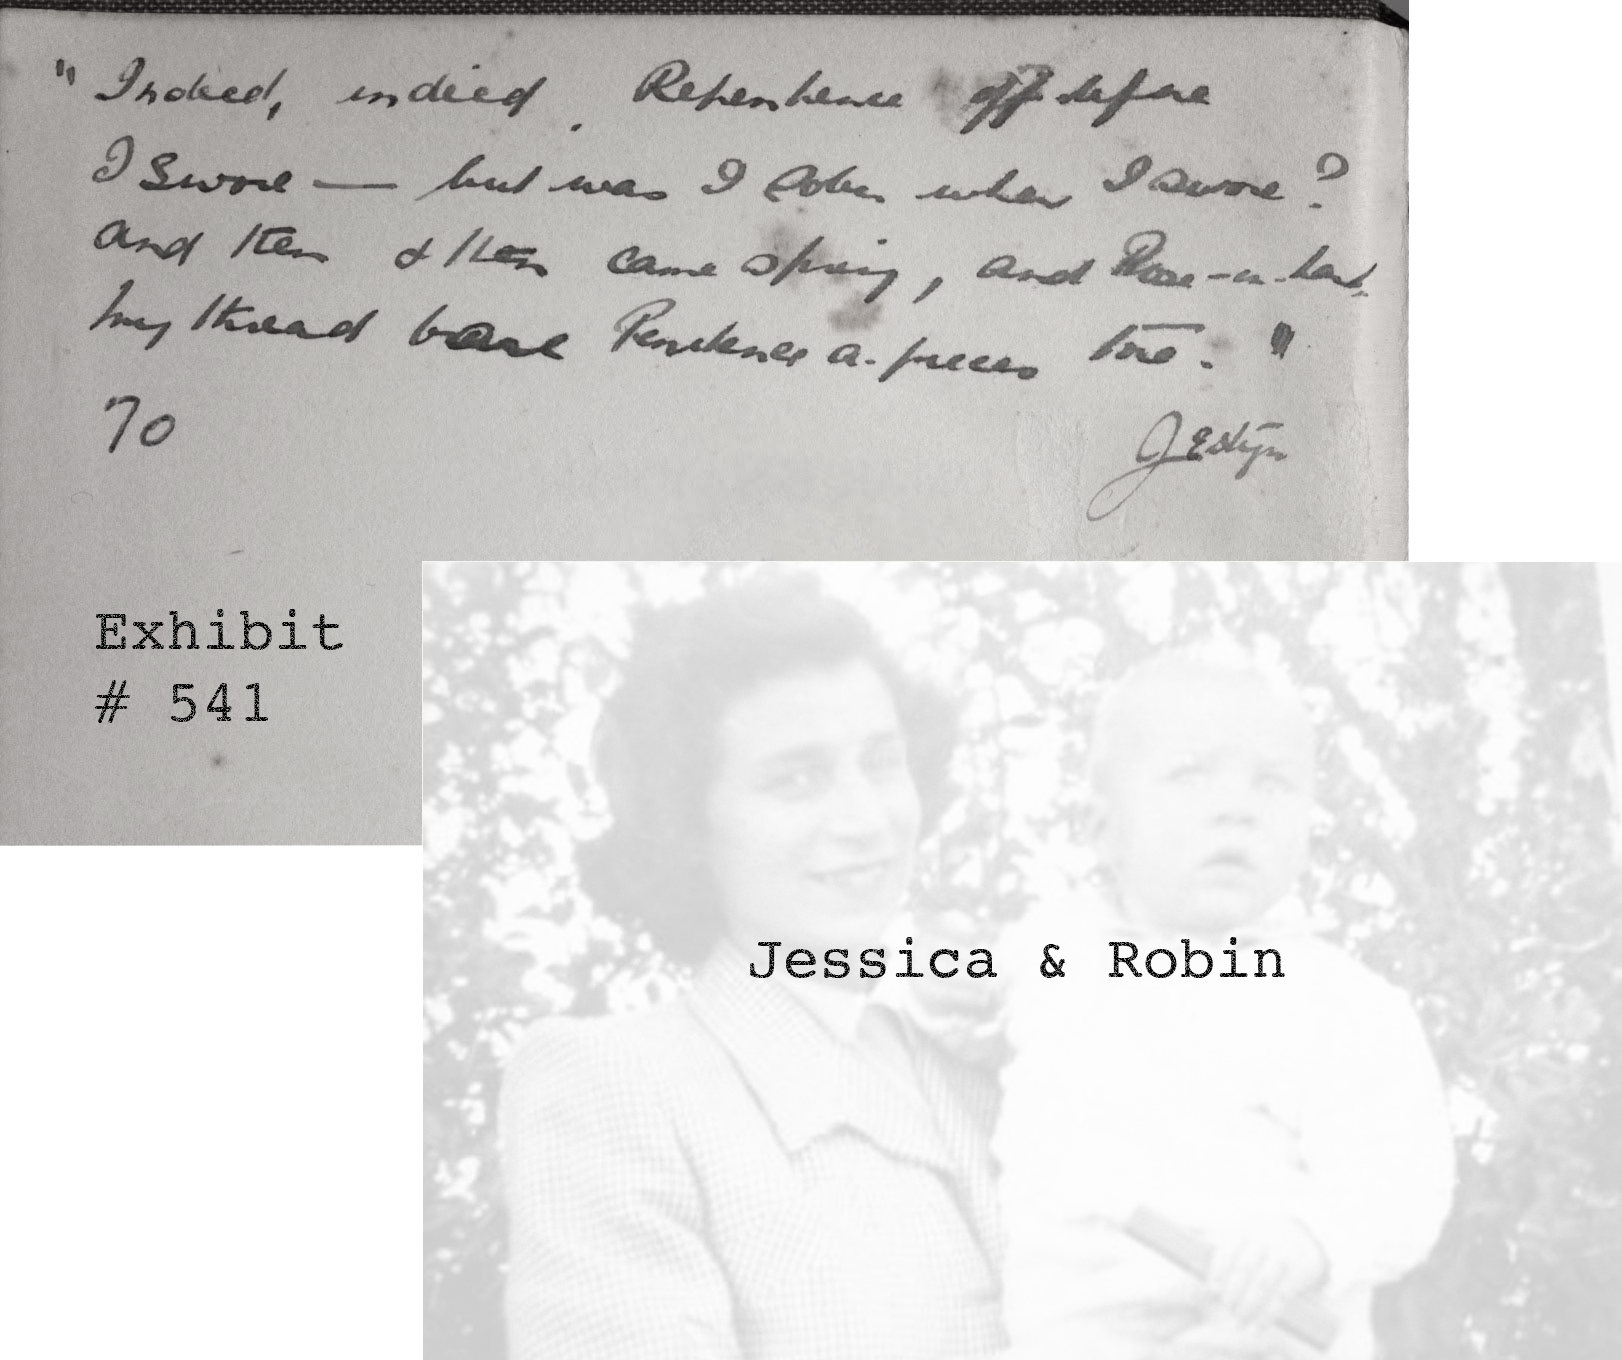 "Indeed, indeed, Repentance oft before
I swore — but was I sober when I swore?
and then & then came spring, and Rose-in-hand
my thread bare Penitence a-pieces tore."
70
JEstyn
Exhibit
# 541
Jessica & Robin